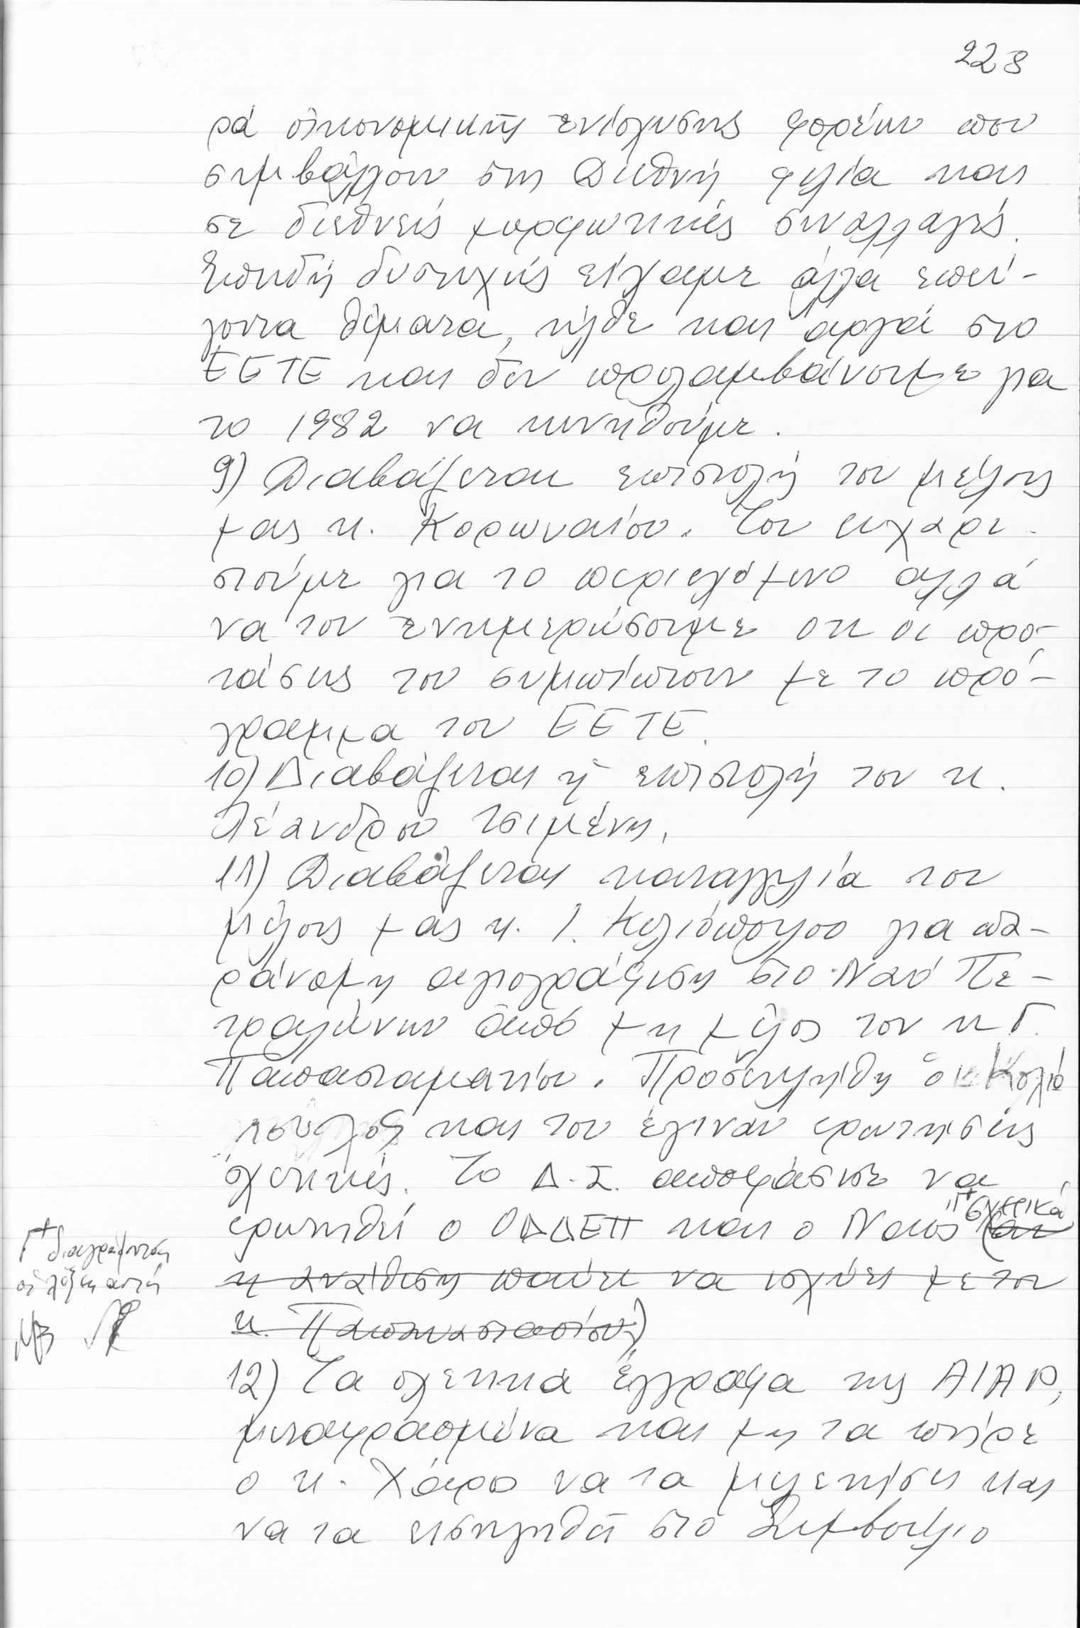 228
ρά οικονομικής ενίσχυσης φορέων που
συμβάλλουν στη Διεθνή φιλία και
σε διεθνείς μορφωτικές συναλλαγές.
Επειδή δυστυχώς είχαμε άλλα επεί-
γοντα θέματα, ήλθε και αργά στο
ΕΕΤΕ και δεν προλαμβάνουμε για
το 1982 να κινηθούμε.
9) Διαβάζεται επιστολή του μέλους
μας κ. Κορωναίου. Τον ευχαρι-
στούμε για το περιεχόμενο αλλά
να τον ενημερώσουμε ότι οι προ-
τάσεις του συμπίπτουν με το πρό-
γραμμα του ΕΕΤΕ.
10) Διαβάζεται η επιστολή του κ.
Λέανδρου Τσιμένη.
11) Διαβάζεται καταγγελία του
μέλους μας κ. Ι. Κολιόπουλου για πα-
ράνομη αγιογράφιση στο Ναό Πε-
τραλώνων από μη μέλος τον κ Γ.
Παπασταματίου. Προσεκλήθη ο κ Κολιό
πουλος και του έγιναν ερωτήσεις
σχετικές. Το Δ.Σ. αποφάσισε να
ερωτηθεί ο ΟΔΔΕΠ και ο Ναός Γ+ σχετικά (αν
η ανάθεση παύει να ισχύει με τον
κ. Παπαναστασίου)
Γ+ διαγράφονται
οι λέξεις αυτές
12) Τα σχετικά έγγραφα της ΑΙΑΡ,
μεταφρασμένα και μη τα πήρε
ο κ. Χάρο να τα μελετήσει και
να τα εισηγηθεί στο Συμβούλιο